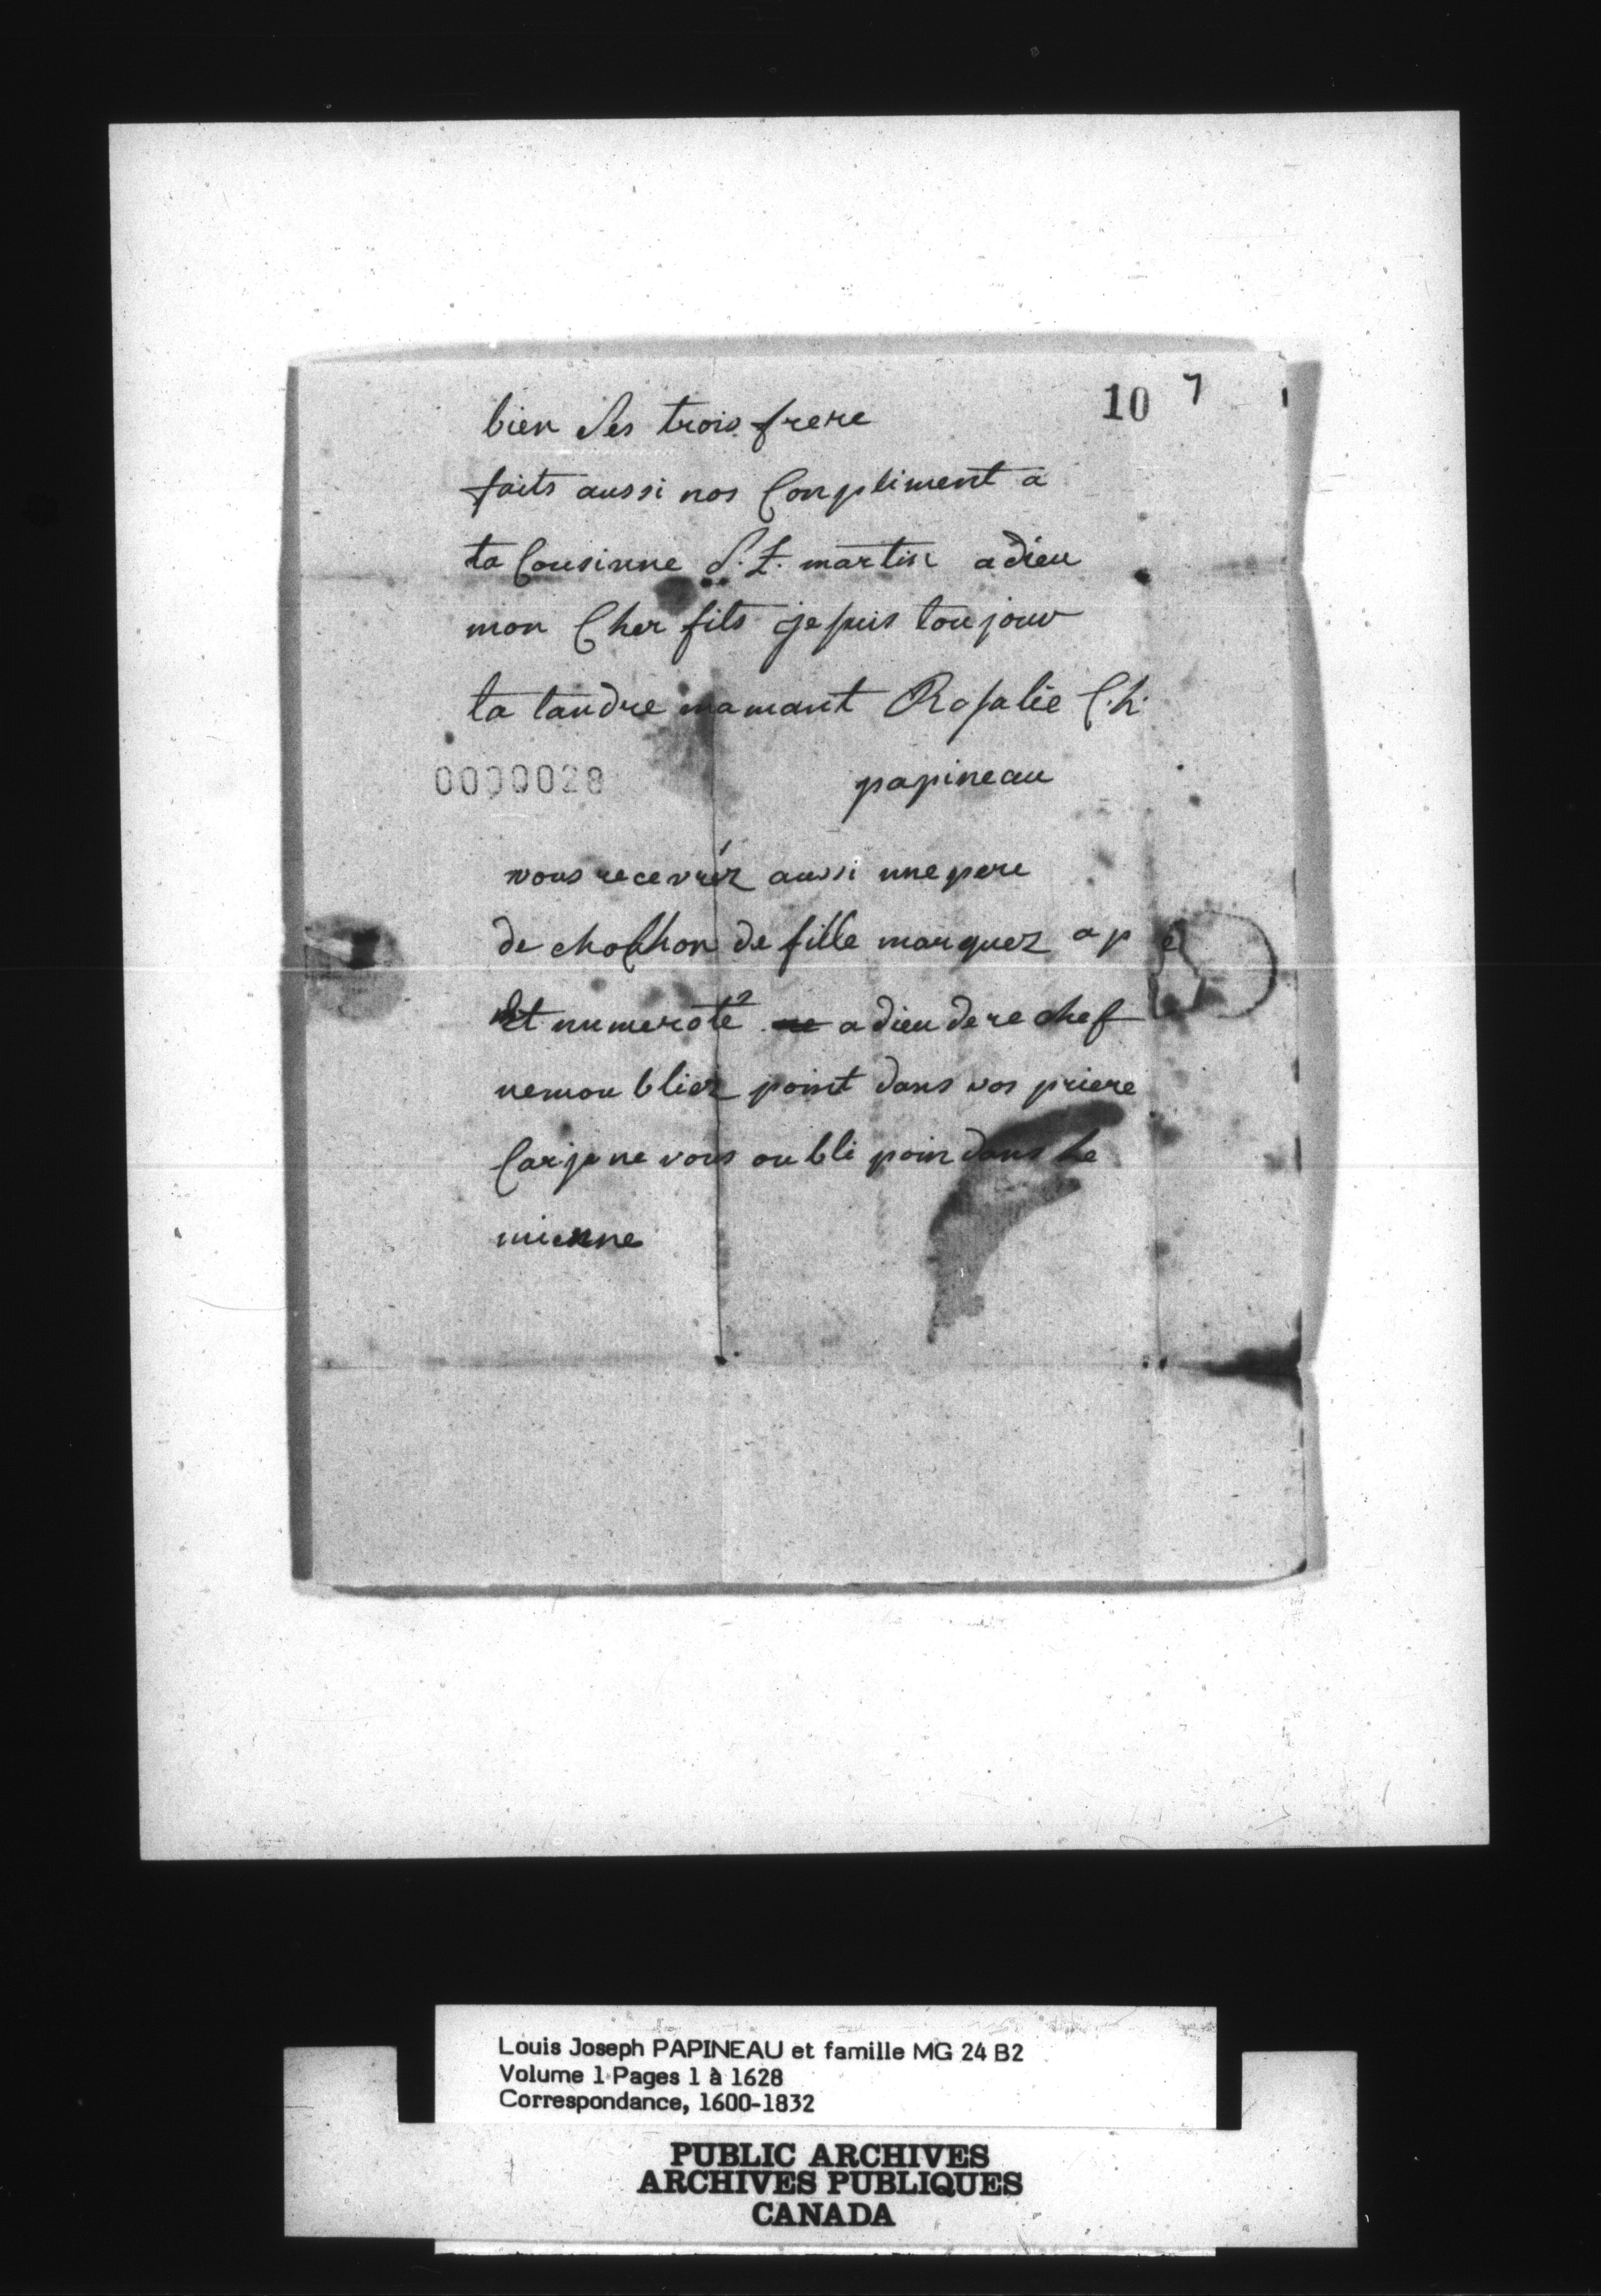 10 7
bien des trois frere
faits aussi nos Conpliment a
ta Cousinne S.t. martin adieu
mon Cher fils je suis toujour
ta tandre mamant Rosalie C.h.
0000028
papineau
vous recevréz aussi une pere
de chochon de fille marquez a p
Et numeroté adieu de re chef
nemou bliez point dans vos priere
Car je ne vous oubli poin dans le
mienne
Louis Joseph PAPINEAU et famille MG 24 B2
Volume 1 Pages 1 à 1628
Correspondance, 1600-1832
PUBLIC ARCHIVES
ARCHIVES PUBLIQUES
CANADA